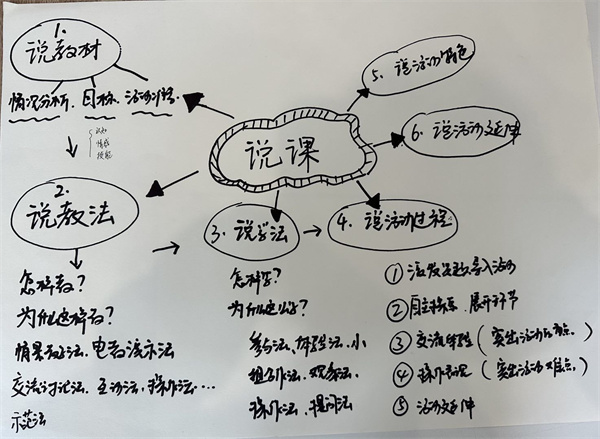 说课
1.
说教材
情况分析、目标、活动准备.
认知
情感
技能
2.
说教法
怎样教?
为什么这样教?
情景教法、电教演示法
交流讨论法、互动法、操作法····
示范法
3.说学法
怎样学?
为什么这么学?
参与法、体验法、小
组合作法、观察法、
操作法、提问法
4.说活动过程
①激发兴趣、导入活动
②自主探索、展开环节
③交流体验(突出活动的重点)
④操作(突出活动难点)
⑤活动延伸
5.说活动特色
6.说活动延伸